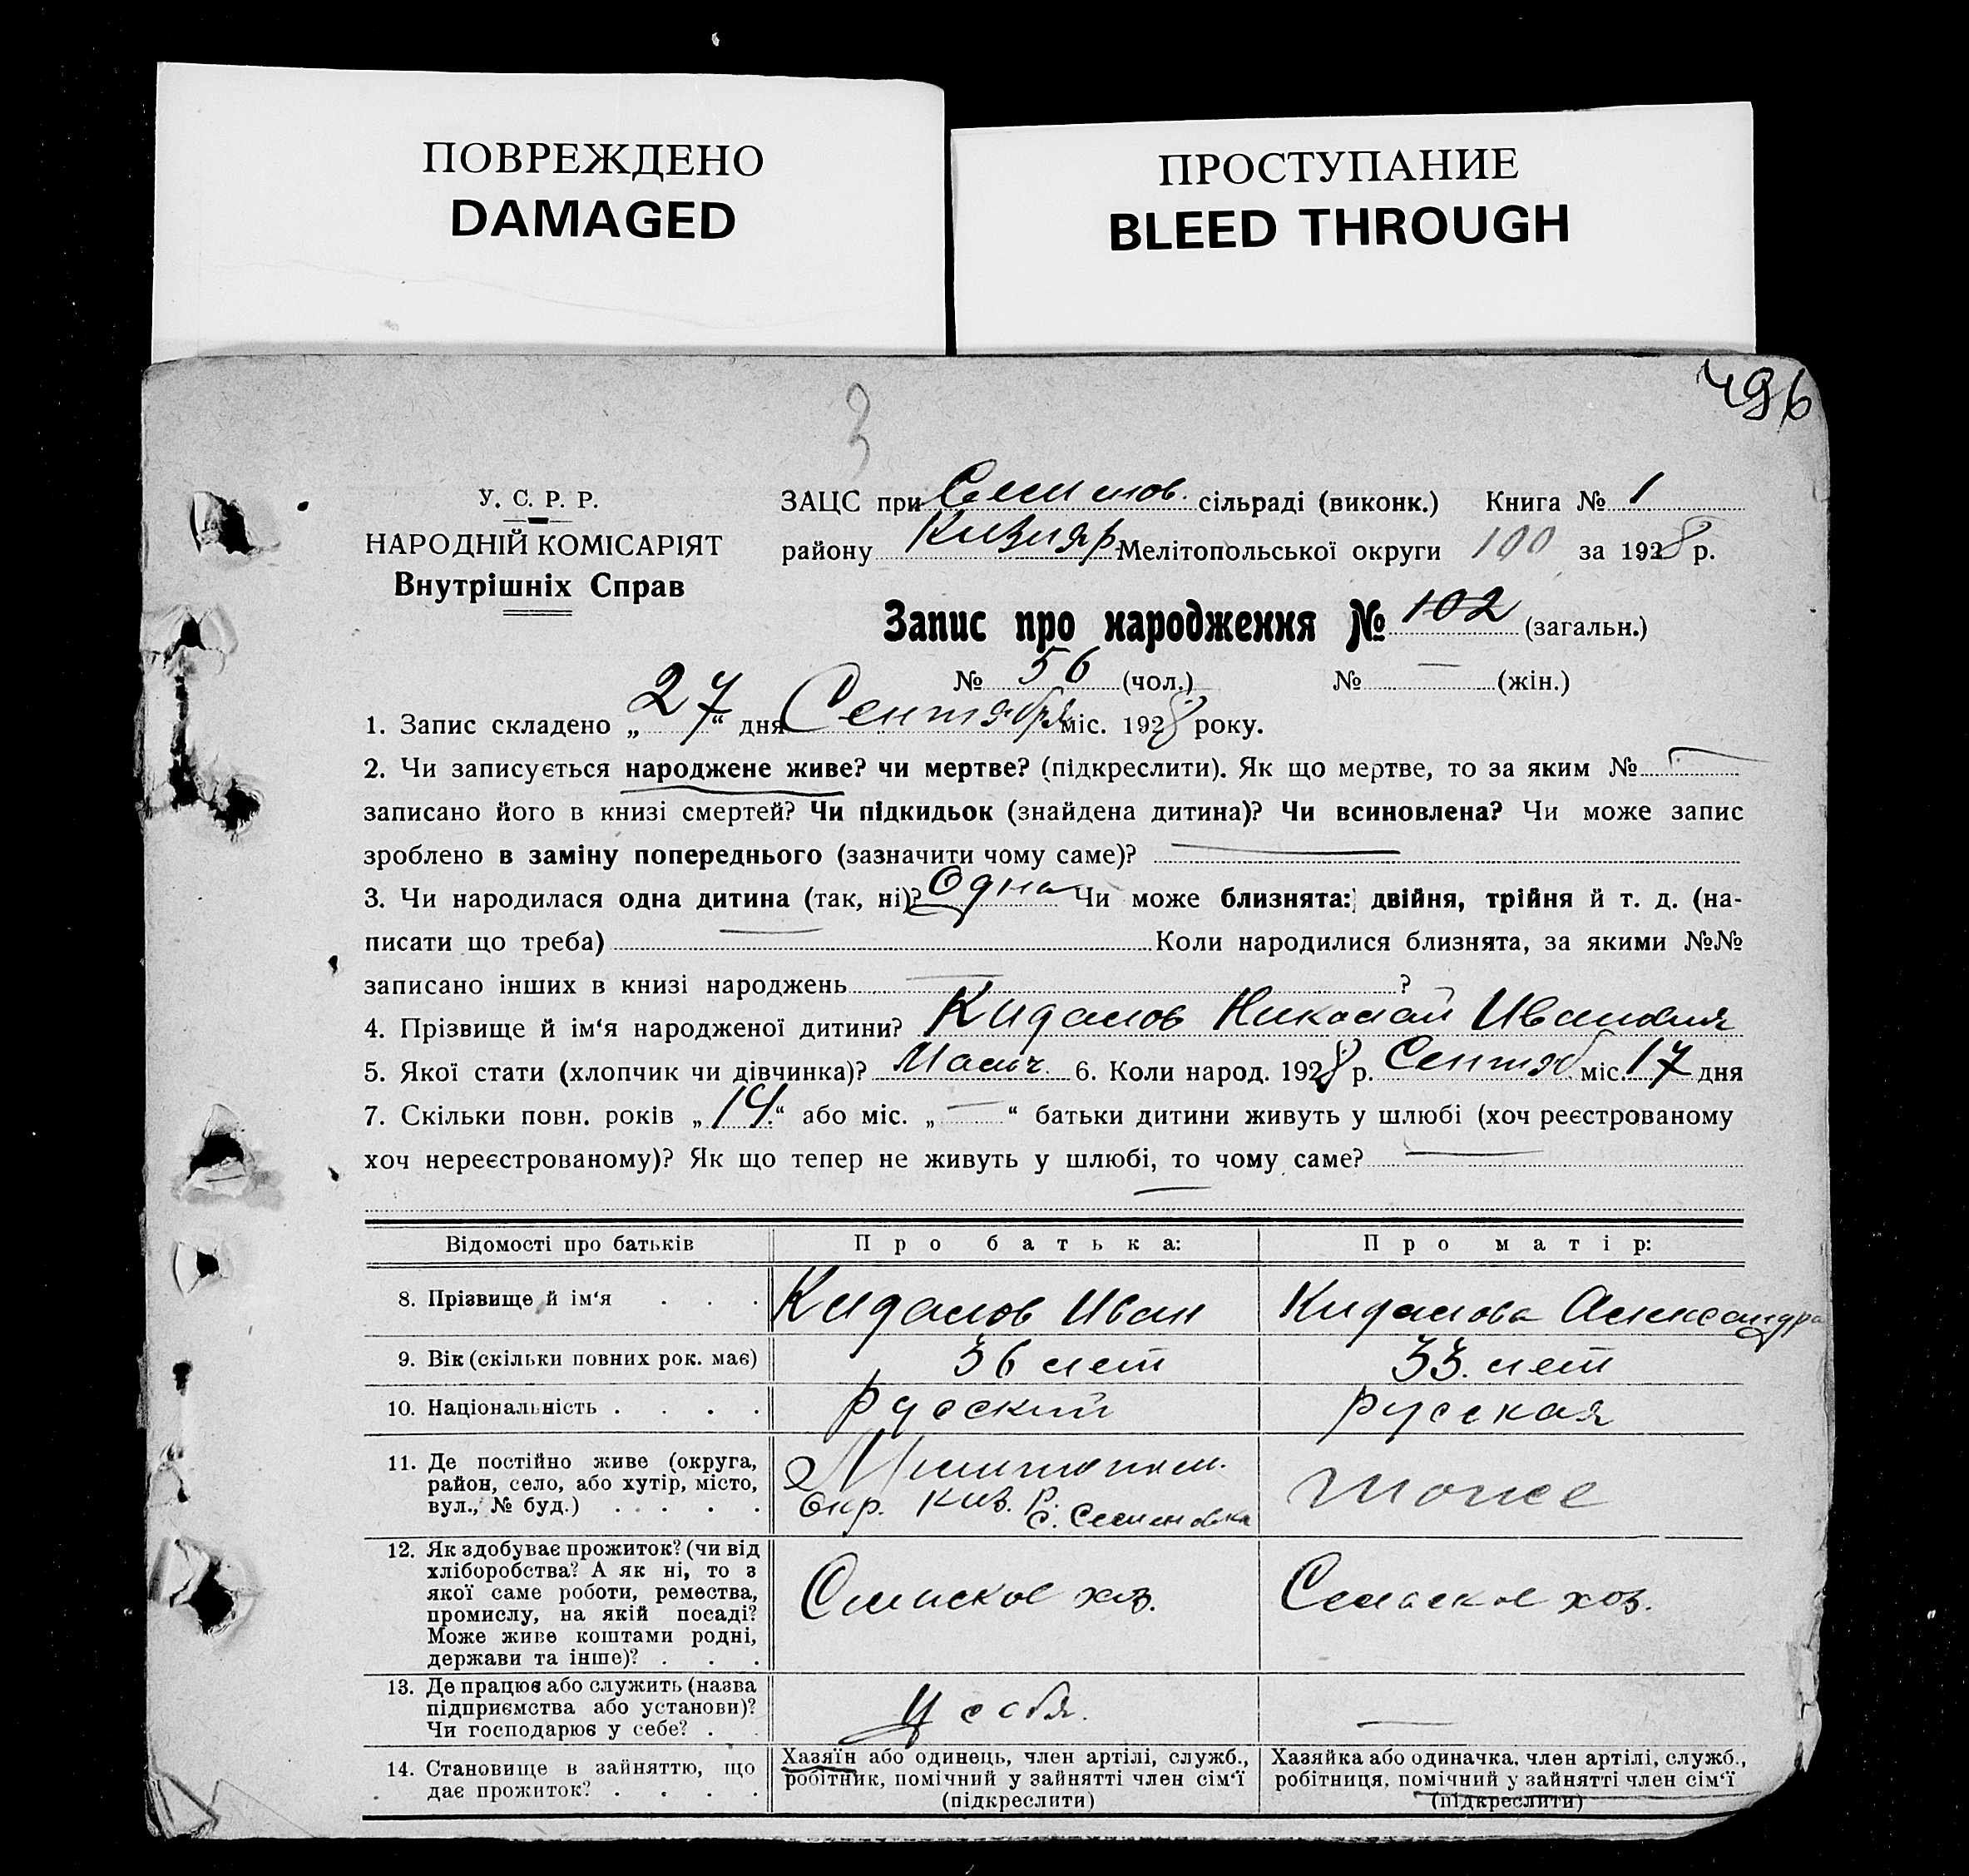 ПОВРЕЖДЕНО
DAMAGED
ПРОСТУПАНИЕ
BLEED THROUGH
496
3
У. С. Р. Р.
НАРОДНІЙ КОМІСАРІЯТ
Внутрішніх Справ
ЗАЦС при Семенов. сільраді (виконк.) Книга № 1
району Кизияр. Мелітопольської округи 100 за 1928 р.
Запис про народження № 102 (загальн.)
№ 56 (чол.) № — (жін.)
1. Запис складено „27“ дня Сентября міс. 1928 року.
2. Чи записується народжене живе? чи мертве? (підкреслити). Як що мертве, то за яким № —
записано його в книзі смертей? Чи підкидьок (знайдена дитина)? Чи всиновлена? Чи може запис
зроблено в заміну попереднього (зазначити чому саме)? —
3. Чи народилася одна дитина (так, ні)? Одна Чи може близнята: двійня, трійня й т. д. (на-
писати що треба) — Коли народилися близнята, за якими №№
записано інших в книзі народжень — ?
4. Прізвище й ім‘я народженої дитини? Кидалов Николай Иванович
5. Якої стати (хлопчик чи дівчинка)? Мальч. 6. Коли народ. 1928 р. Сентяб міс. 17 дня
7. Скільки повн. років „14.“ або міс. „—“ батьки дитини живуть у шлюбі (хоч реєстрованому
хоч нереєстрованому)? Як що тепер не живуть у шлюбі, то чому саме? —
—
Відомості про батьків Про батька: Про матір:
8. Прізвище й ім‘я . . . Кидалов Иван Кидалова Александра
9. Вік (скільки повних рок. має) 36 лет 33. лет
10. Національність . . . . русский русская
11. Де постійно живе (округа,
район, село, або хутір, місто,
вул., № буд.) . . . . .
Мелитопол.
Окр. Киз. р.
с. Семеновка
тоже
12. Як здобуває прожиток? (чи від
хліборобства? А як ні, то з
якої саме роботи, ремества,
промислу, на якій посаді?
Може живе коштами родні,
держави та інше)? . . .
Сельское хоз. Сельское хоз.
13. Де працює або служить (назва
підприємства або установи)?
Чи господарює у себе? . .
У себя. —
14. Становище в зайняттю, що
дає прожиток? . . . .
Хазяїн або одинець, член артілі, служб.,
робітник, помічний у зайнятті член сім‘ї
(підкреслити)
Хазяйка або одиначка, член артілі, служб.,
робітниця, помічний у зайнятті член сім‘ї
(підкреслити)